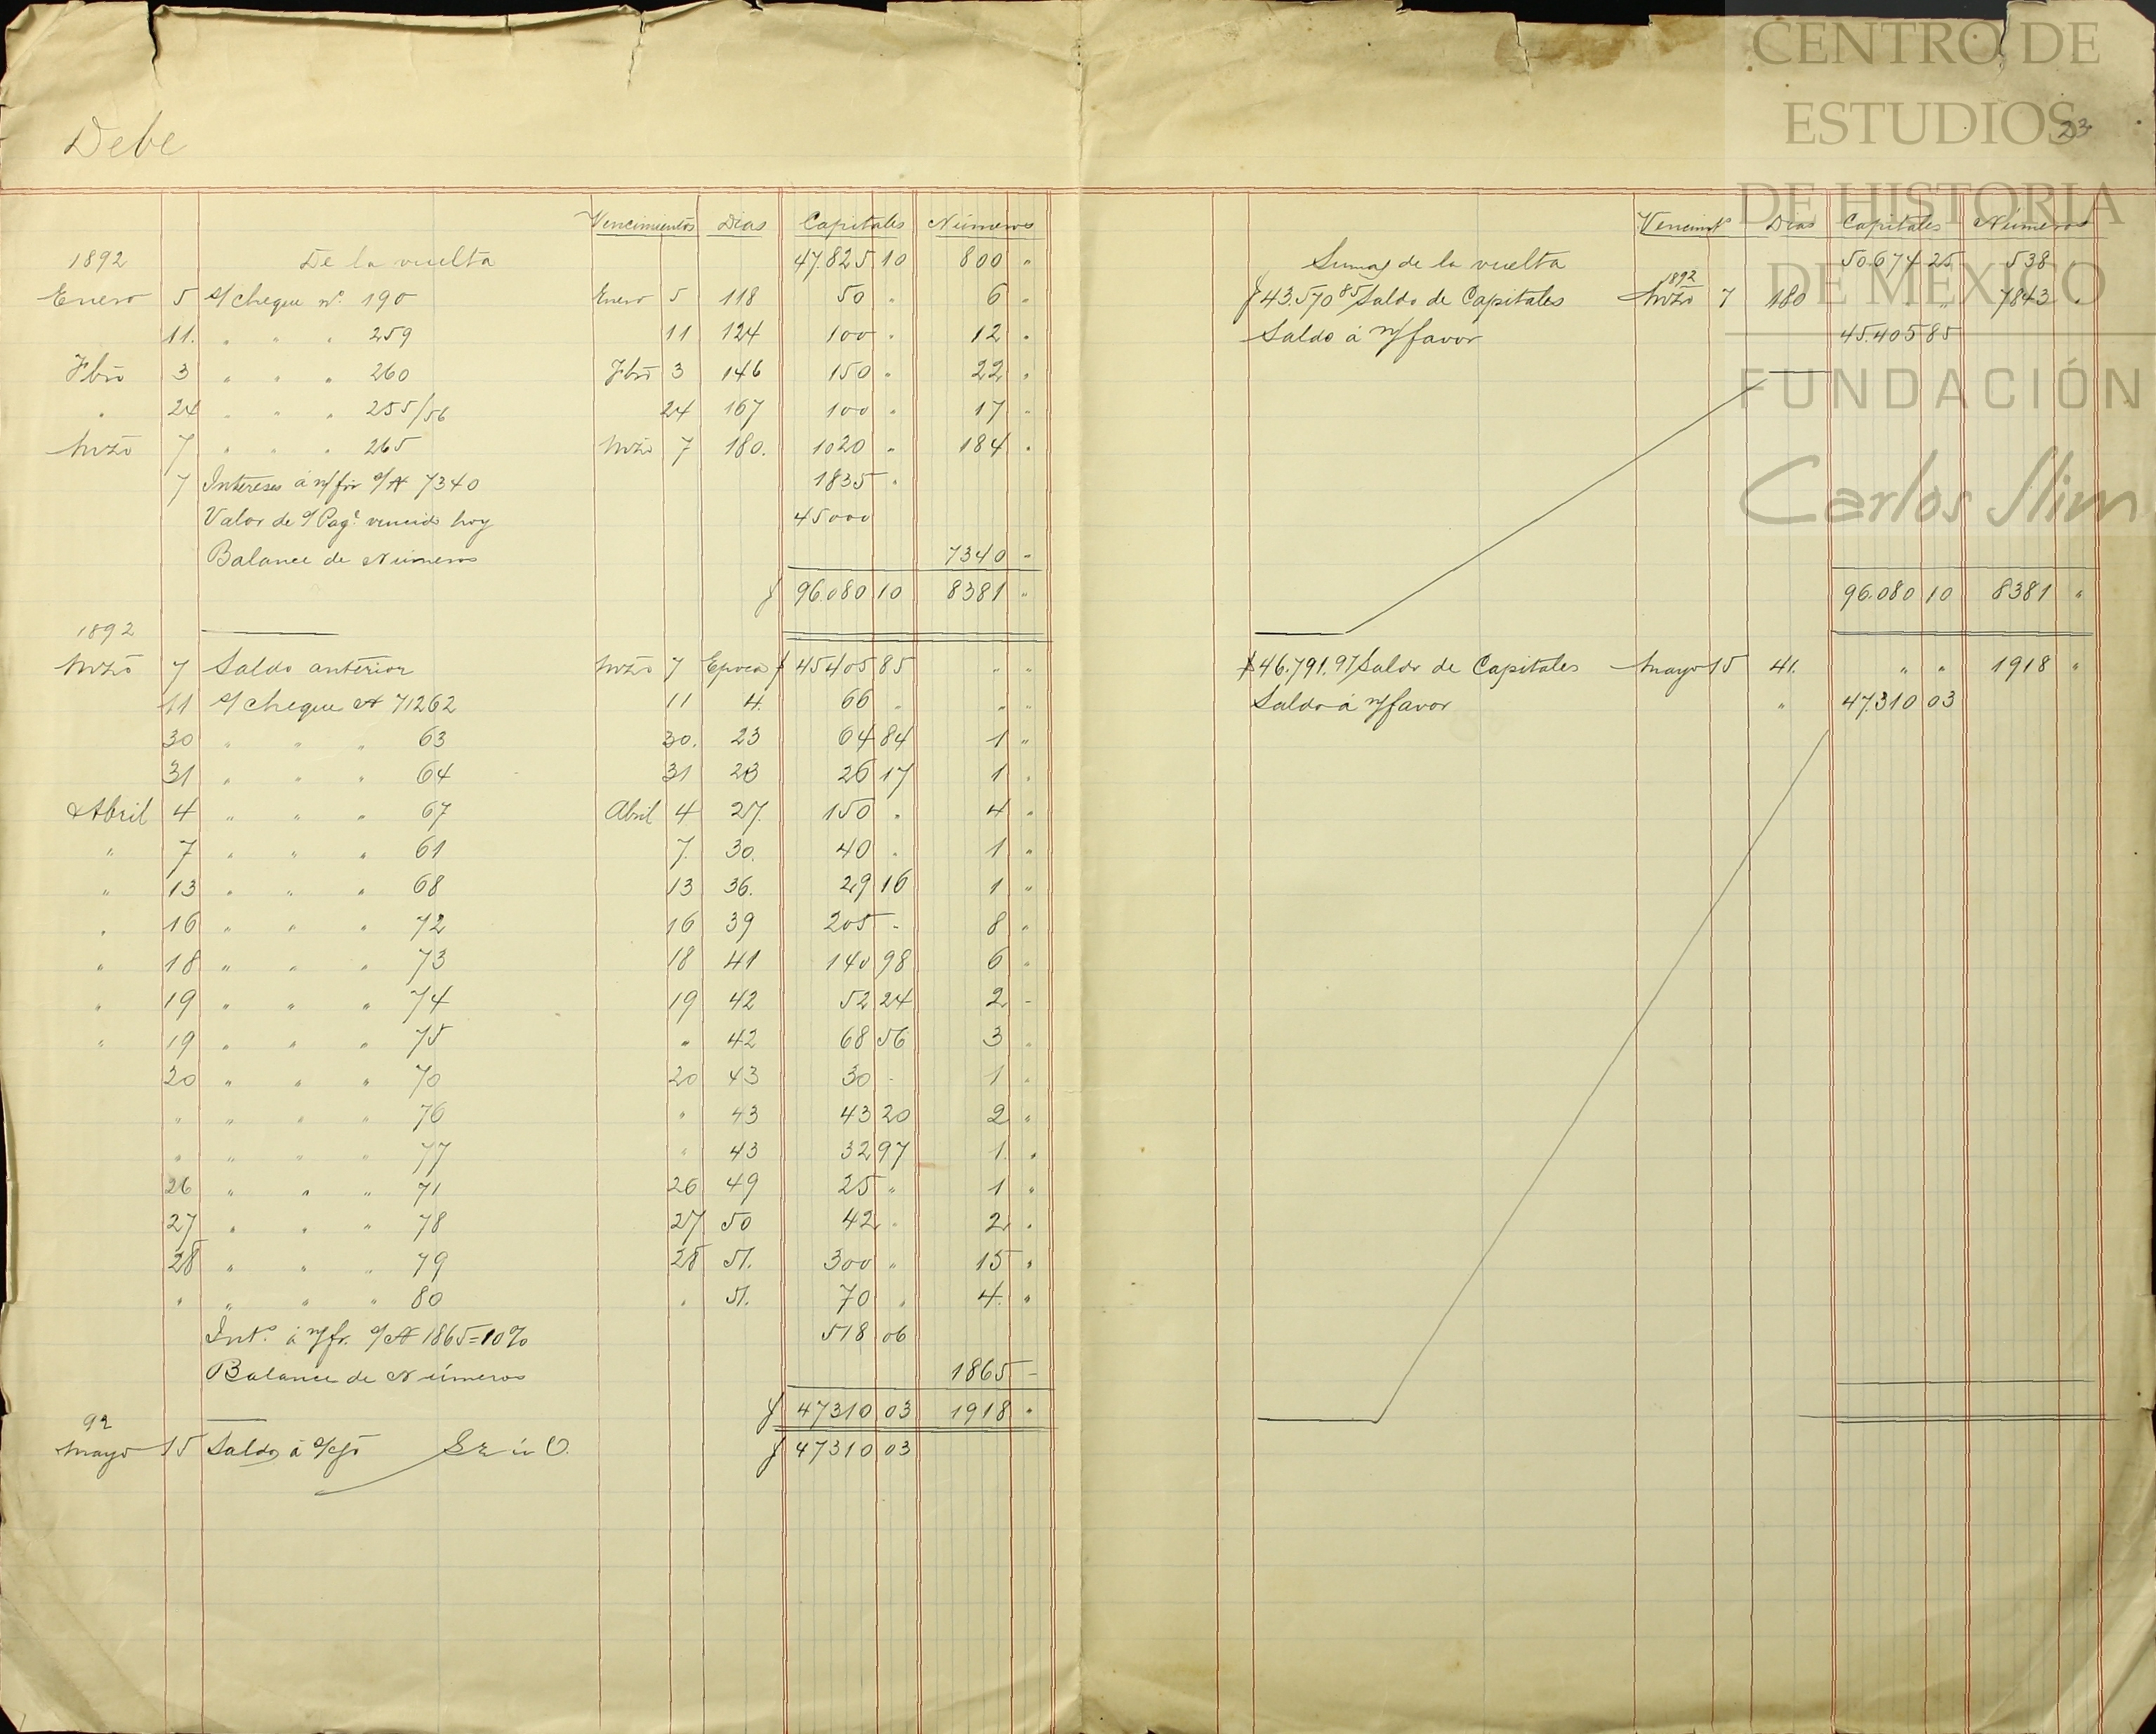 Debe
23
Vencimientos Dias Capitales Números
1892 De la vuelta 47.825 10 800 "
Enero 5 s/ cheque nº 190 Enero 5 118 50 " 6 "
11. " " " 259 11 124 100 " 12 "
Fbro 3 " " " 260 Fbro 3 146 150 " 22 "
" 24 " " " 255/56 24 167 100 " 17 "
Mrzo 7 " " " 265 Mrzo 7 180. 1020 " 184 "
7 Intereses á n/fr s/N 7340 1835 "
Valor de s/ Pagé vencido hoy 45000
Balance de Números 7340 "
$ 96.080 10 8381 "
1892
Mrzo 7 Saldo anterior Mrzo 7 Epoca $ 45405 85 " "
11 s/ cheque N 71262 11 4. 66 " " "
30 " " " 63 30. 23 64 84 1 "
31 " " " 64 31 23 26 17 1 "
Abril 4 " " " 67 Abril 4 27. 150 " 4 "
" 7 " " " 61 7. 30. 40 " 1 "
" 13 " " " 68 13 36. 29 16 1 "
" 16 " " " 72 16 39 205 - 8 "
" 18 " " " 73 18 41 140 98 6 "
" 19 " " " 74 19 42 52 24 2 -
" 19 " " " 75 " 42 68 56 3 "
20 " " " 70 20 43 30 - 1 "
" " " " 76 " 43 43 20 2 "
" " " " 77 " 43 32 97 1. "
26 " " " 71 26 49 25 " 1 "
27 " " " 78 27 50 42 " 2 "
28 " " " 79 28 51. 300 " 15 "
" " " " 80 " 51. 70 " 4. "
Ints á n/fr. s/N 1865=10% 518 06
Balance de Números 1865 -
$ 47310 03 1918 "
92
Mayo 15 Saldo á $ 47310 03
Vencimto Dias Capitales Números
Sumas de la vuelta 50.674 25 538 "
$43.570 85 Saldo de Capitales 1892 Mrzo 7 180 " " 7843 "
Saldo á n/favor 45.405 85
96.080 10 8381 "
$46.791.97 Saldo de Capitales Mayo 15 41. " " 1918 "
Saldo á n/favor " 47310 03
CENTRO DE
ESTUDIOS
DE HISTORIA
DE MÉXICO
FUNDACIÓN
Carlos Slim